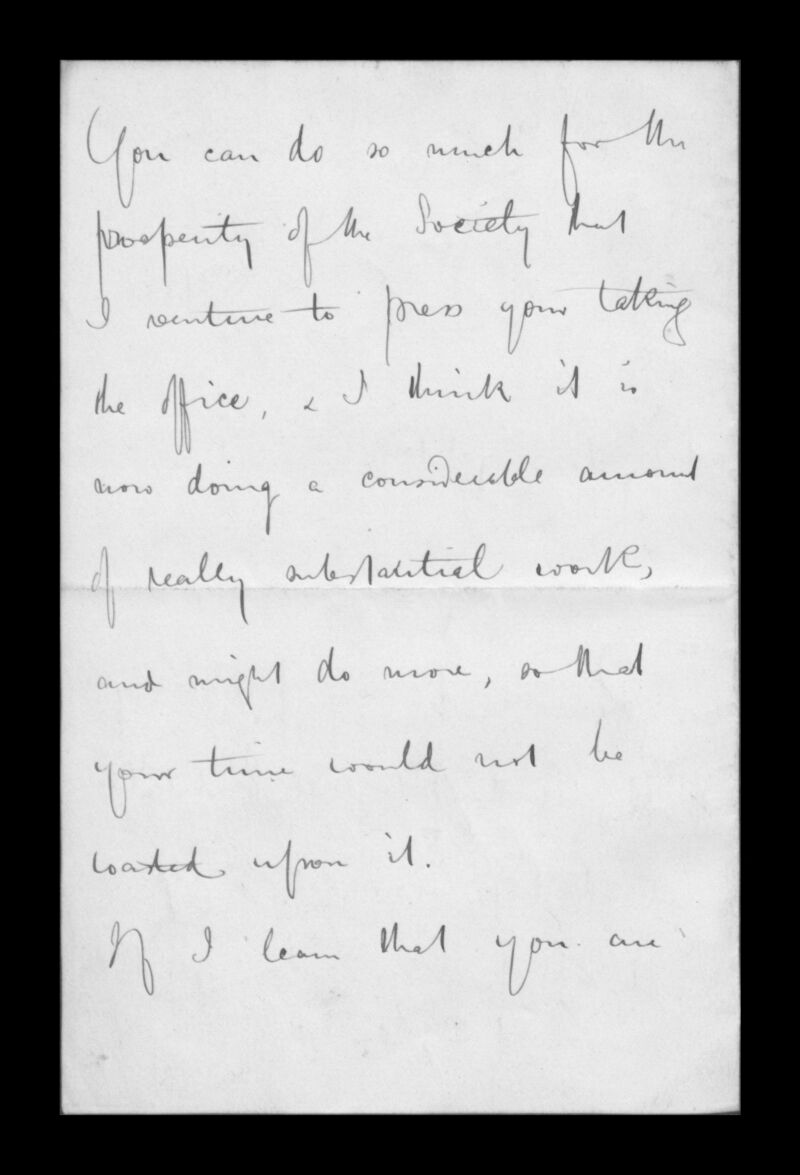 You can do so much for the
prosperity of the Society that
I venture to press your taking
the office, & I think it is
now doing a considerable amount
of really substantial work,
and might do more, so that
your time would not be
wasted upon it.
If I learn that you are